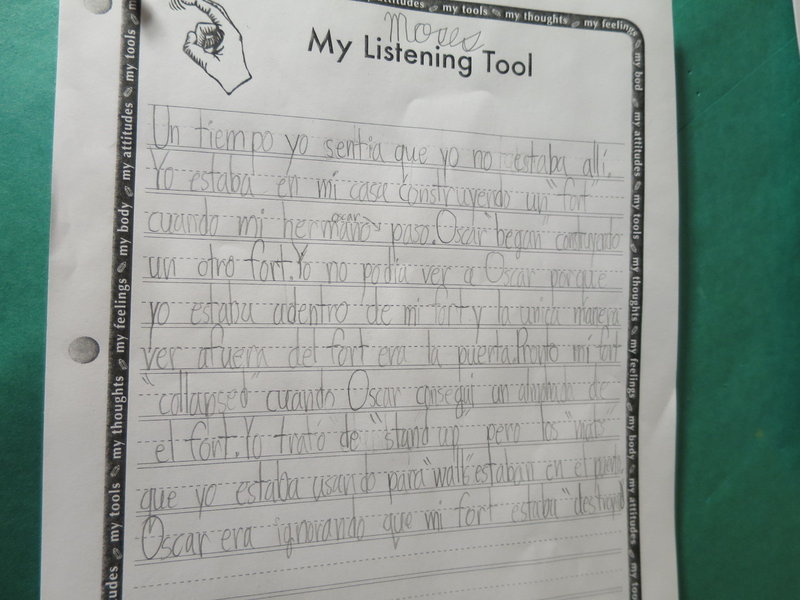 my tools my thoughts my feelings my bod
my attitudes my tools my thoughts my feelings my body my attitudes my too
udes my tools my thoughts my feelings my body my attitudes my tools
Moves
My Listening Tool
Un tiempo yo sentia que yo no estaba allí.
Yo estaba en mi casa construyendo un "fort"
cuando mi hermano oscar paso. Oscar "began" construyado
un otro fort. Yo no podía ver a Oscar porque
yo estaba adentro de mi fort y la unica manera
ver afuera del fort era la puerta. Pronto mi fort
"collapsed" cuando Oscar consegui un almohada de
el fort. Yo trató de "stand up" pero los "mats"
que yo estaba usando para "walls" estaban en el
Oscar era ignorando que mi fort estaba "destroyed